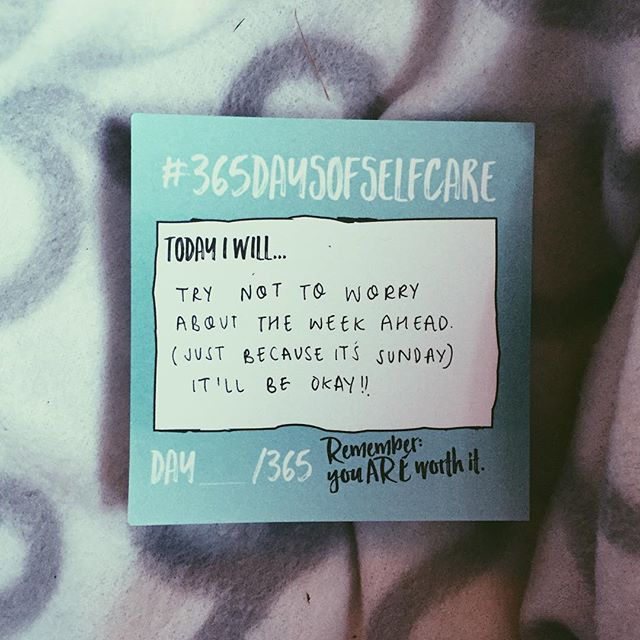 #365DAYSOFSELFCARE
TODAY I WILL...
TRY NOT TO WORRY
ABOUT THE WEEK AHEAD.
(JUST BECAUSE IT'S SUNDAY)
IT'LL BE OKAY!!
DAY___/365
Remember:
you ARE worth it.